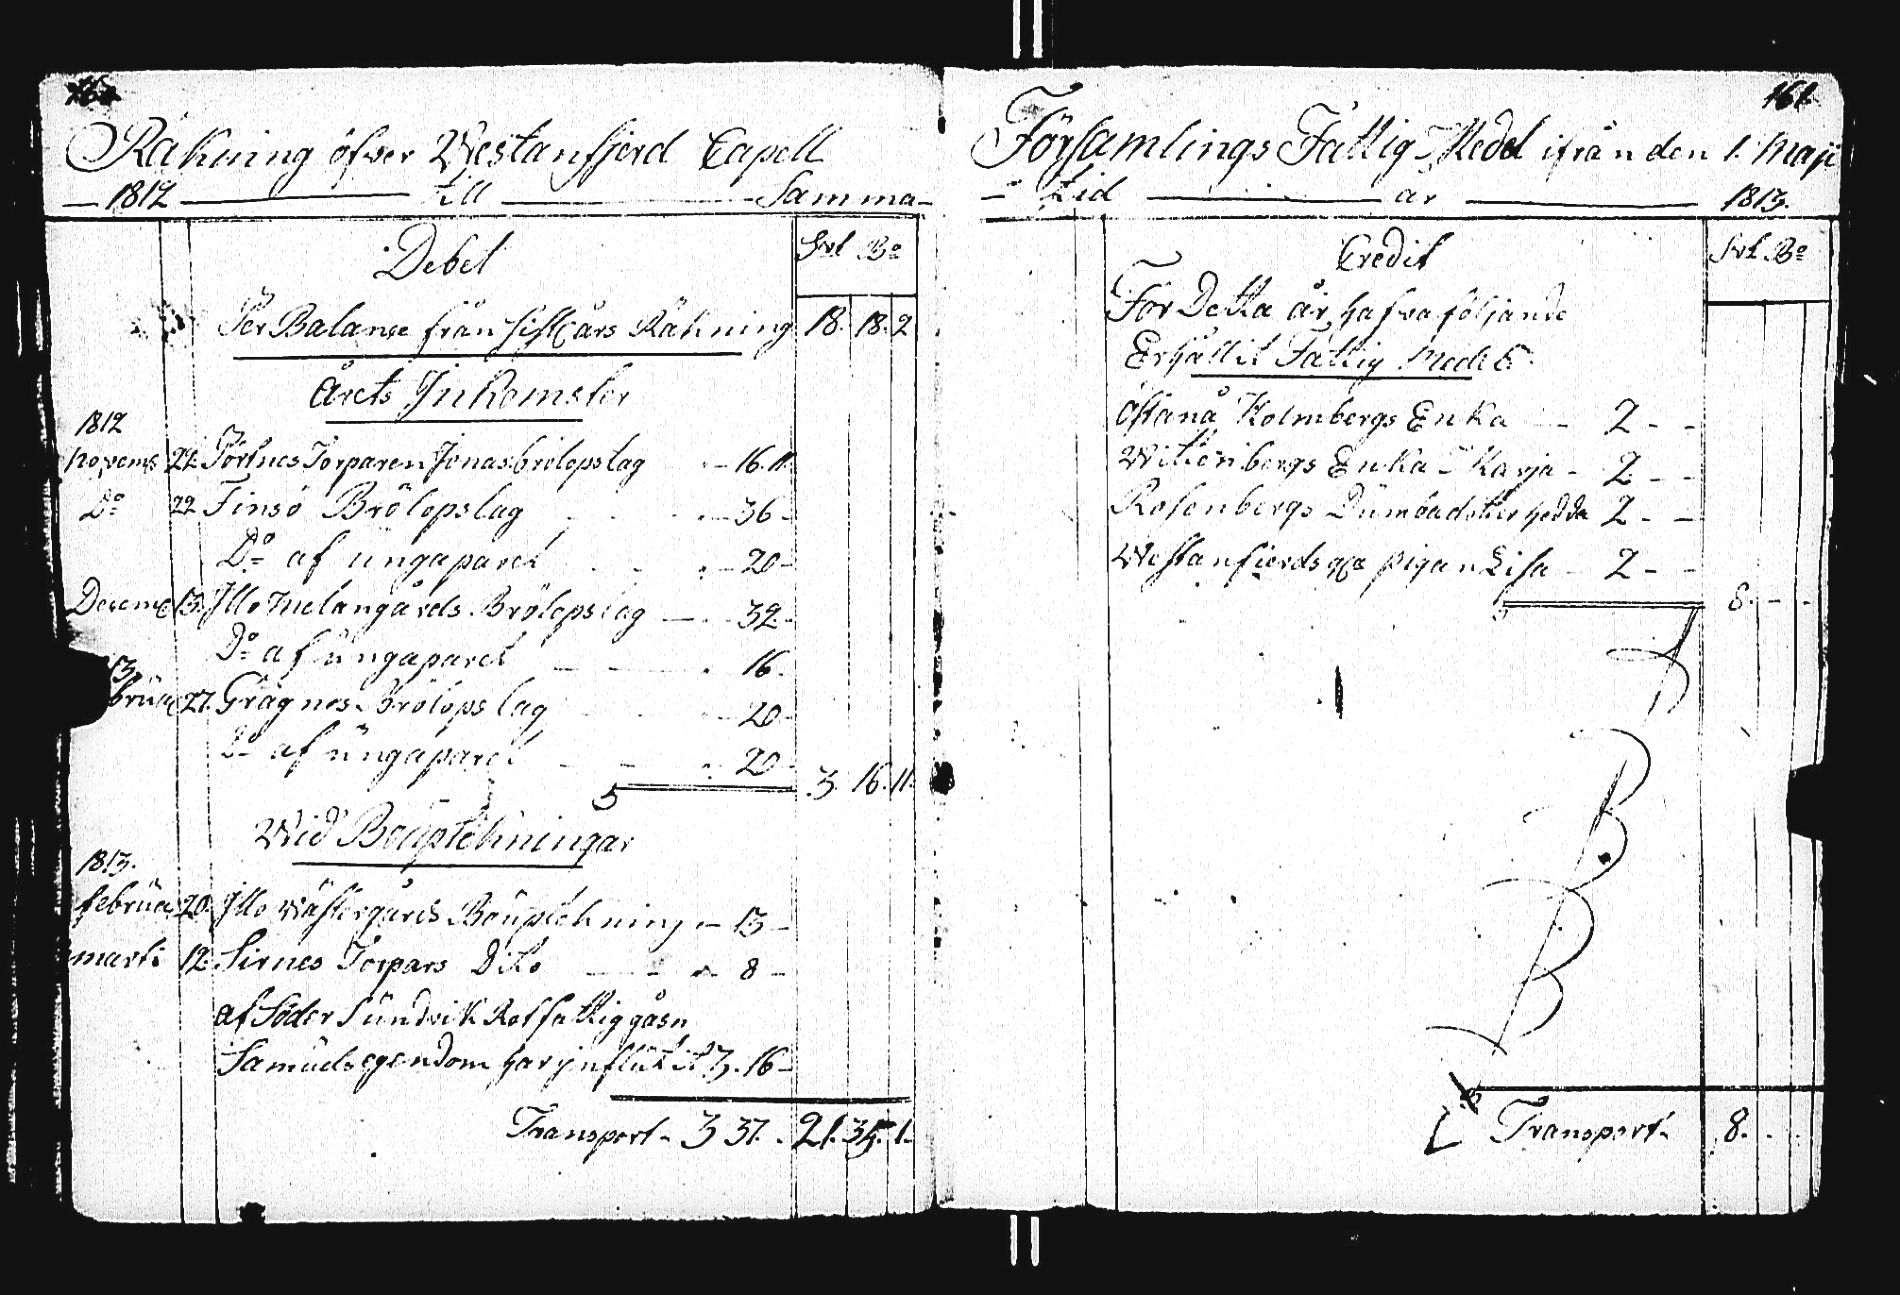 Räkning öfver Westanfjerd Capell
— 1812 — till — Samma —
Debet
Srl Bo
Per Balance från sistl. års Räkning 18. 18. 2
Årets Inkomster
1812
Novemb 22. Pörtnes Torparen Jonas brölopslag — 16. 11.
Do 22 Finsö Brölopslag — 36 —
Do af ungaparet — 20 —
Decemb 13. Illo Melangårds Brölopslag — 32 —
Do af ungaparet — 16.
13.
bruar 27. Grägnes Brölopslag — 20 —
Do af ungaparet — 20 — 3. 16. 11.
Wid Boupteckningar
1813.
februar 20. Illo Wästergårds Bouptekning — 13 —
marti 12. Sirnes Torpars Dito — 8 —
af Söder Sundvik Rotfattiggåsn
Samuels egendom har influtit 3. 16 —
Transport — 3 37. — 21. 35. 1 —
161
Församlings Fattig Medel ifrån den 1. Maji
— tid — år — 1813.
Credit
Srl. Bo
För Detta år hafva följande
Erhållit Fattig Medel
Östanå Holmbergs Enka — 2 — —
Wittenbergs Enka Karja — 2 — —
Rosenbergs Dumbadotter Hedda 2 — —
Westanfjerds qse pigan Lisa — 2 — —
8. — —
Transport — 8. . .